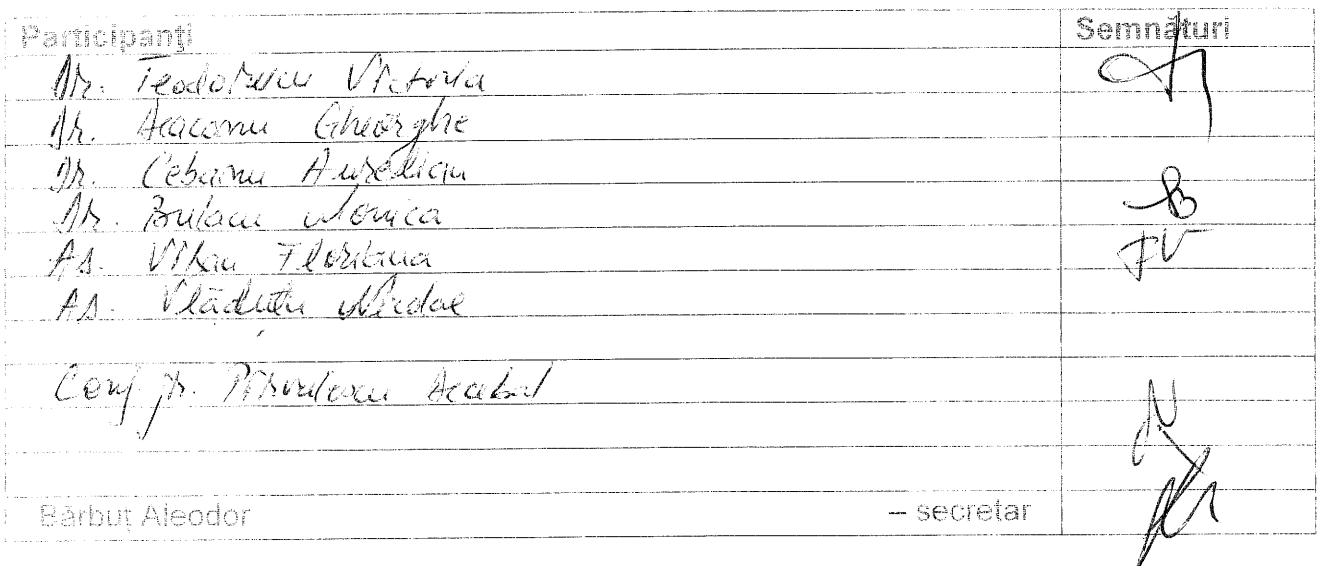 Participanţi Semnături
Dr. Teodorescu Victoria
Dr. Gheorghe
Dr. Cebanu Aurelian
Dr. Monica
As. Floriana
As. Vlăduţu Nicolae
Conf. dr. Pîrvulescu
Bărbuț Aleodor – secretar